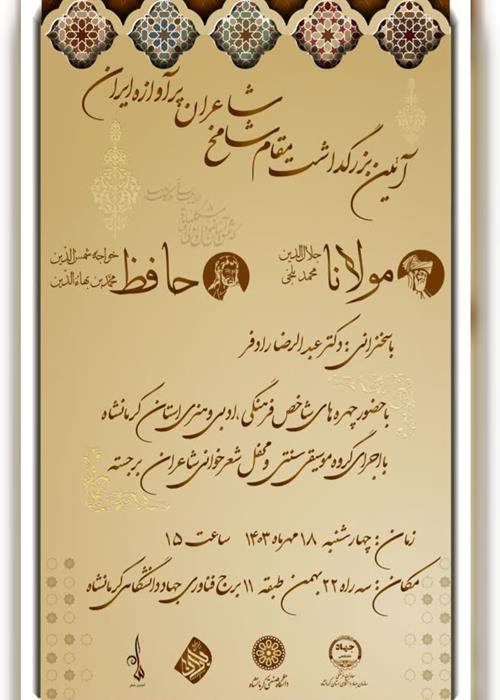 آئین بزرگداشت مقام شامخ
شاعران پرآوازه ایران
مولانا
جلال‌الدین
محمد بلخی
حافظ
خواجه شمس‌الدین
محمد بن بهاءالدین
با سخنرانی: دکتر عبدالرضا رادفر
با حضور چهره های شاخص فرهنگی، ادبی و هنری استان کرمانشاه
با اجرای گروه موسیقی سنتی و محفل شعرخوانی شاعران برجسته
زمان: چهارشنبه ۱۸ مهرماه ۱۴۰۳ ساعت ۱۵
مکان: سه راه ۲۲ بهمن طبقه ۱۱ برج فناوری جهاد دانشگاهی کرمانشاه
جهاد
دانشگاه صنعتی کرمانشاه